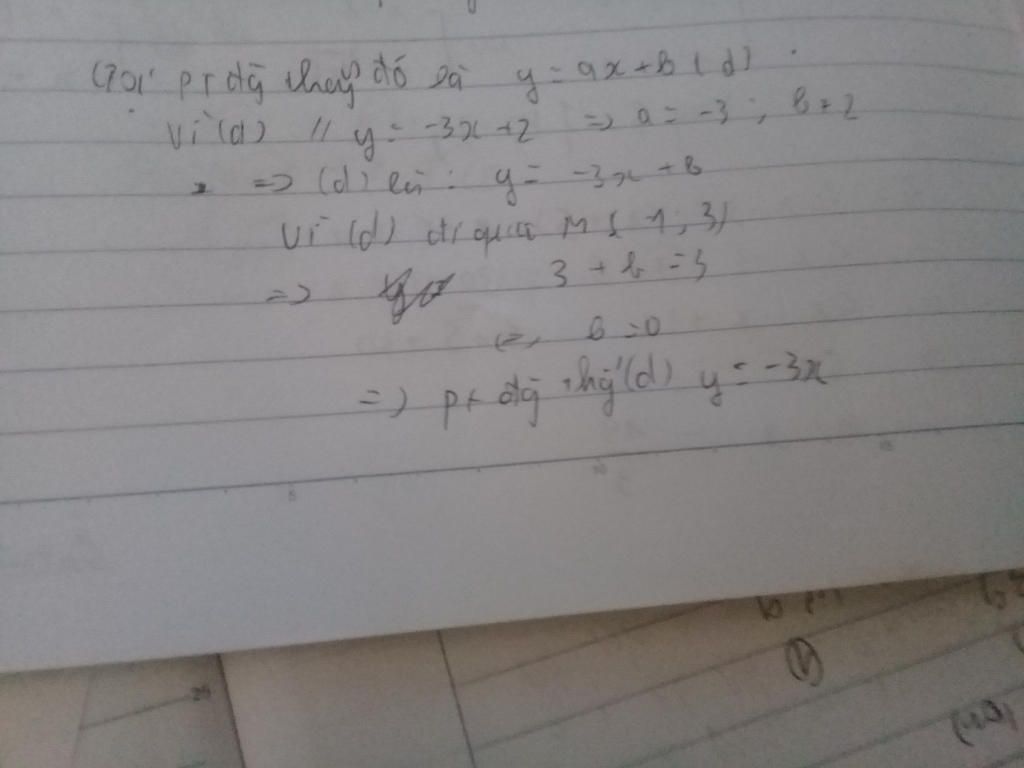 Gọi pt đg thẳng đó là y = ax + b (d)
Vì (d) // y = -3x + 2 => a = -3 ; b ≠ 2
=> (d) là : y = -3x + b
Vì (d) đi qua M ( 1 ; 3)
=> 3 + b = 3
<=> b = 0
=> pt đg thg (d) y = -3x
5 10 15